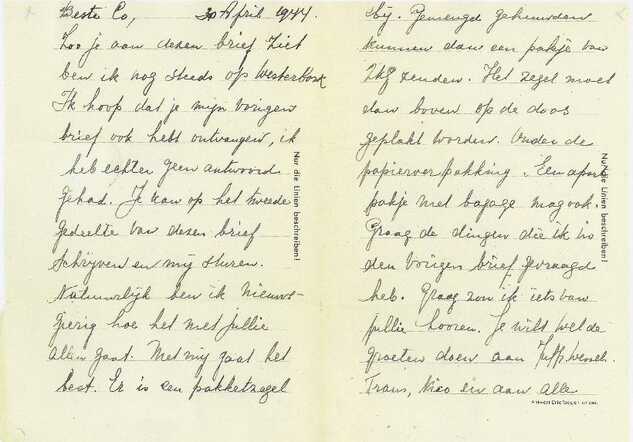 Beste Co, 30 April 1944.
Zoo je aan dezen brief ziet
ben ik nog steeds op Westerbork
Ik hoop dat je mijn vorigen
brief ook hebt ontvangen, ik
heb echter geen antwoord
gehad. Je kan op het tweede
gedeelte van dezen brief
schrijven en mij sturen.
Natuurlijk ben ik nieuws-
gierig hoe het met jullie
allen gaat. Met mij gaat het
best. Er is een pakketzegel
Nur die Linien beschreiben!
bij. Gemengd gehuwden
kunnen dan een pakje van
2kg zenden. Het zegel moet
dan boven op de doos
geplakt worden. Onder de
papierverpakking. Een apart
pakje met bagage mag ook.
Graag de dingen die ik in
den vorigen brief gevraagd
heb. Graag zou ik iets van
jullie hooren. Je wilt wel de
groeten doen aan
Frans, Nico en aan alle
Nur die Linien beschreiben!